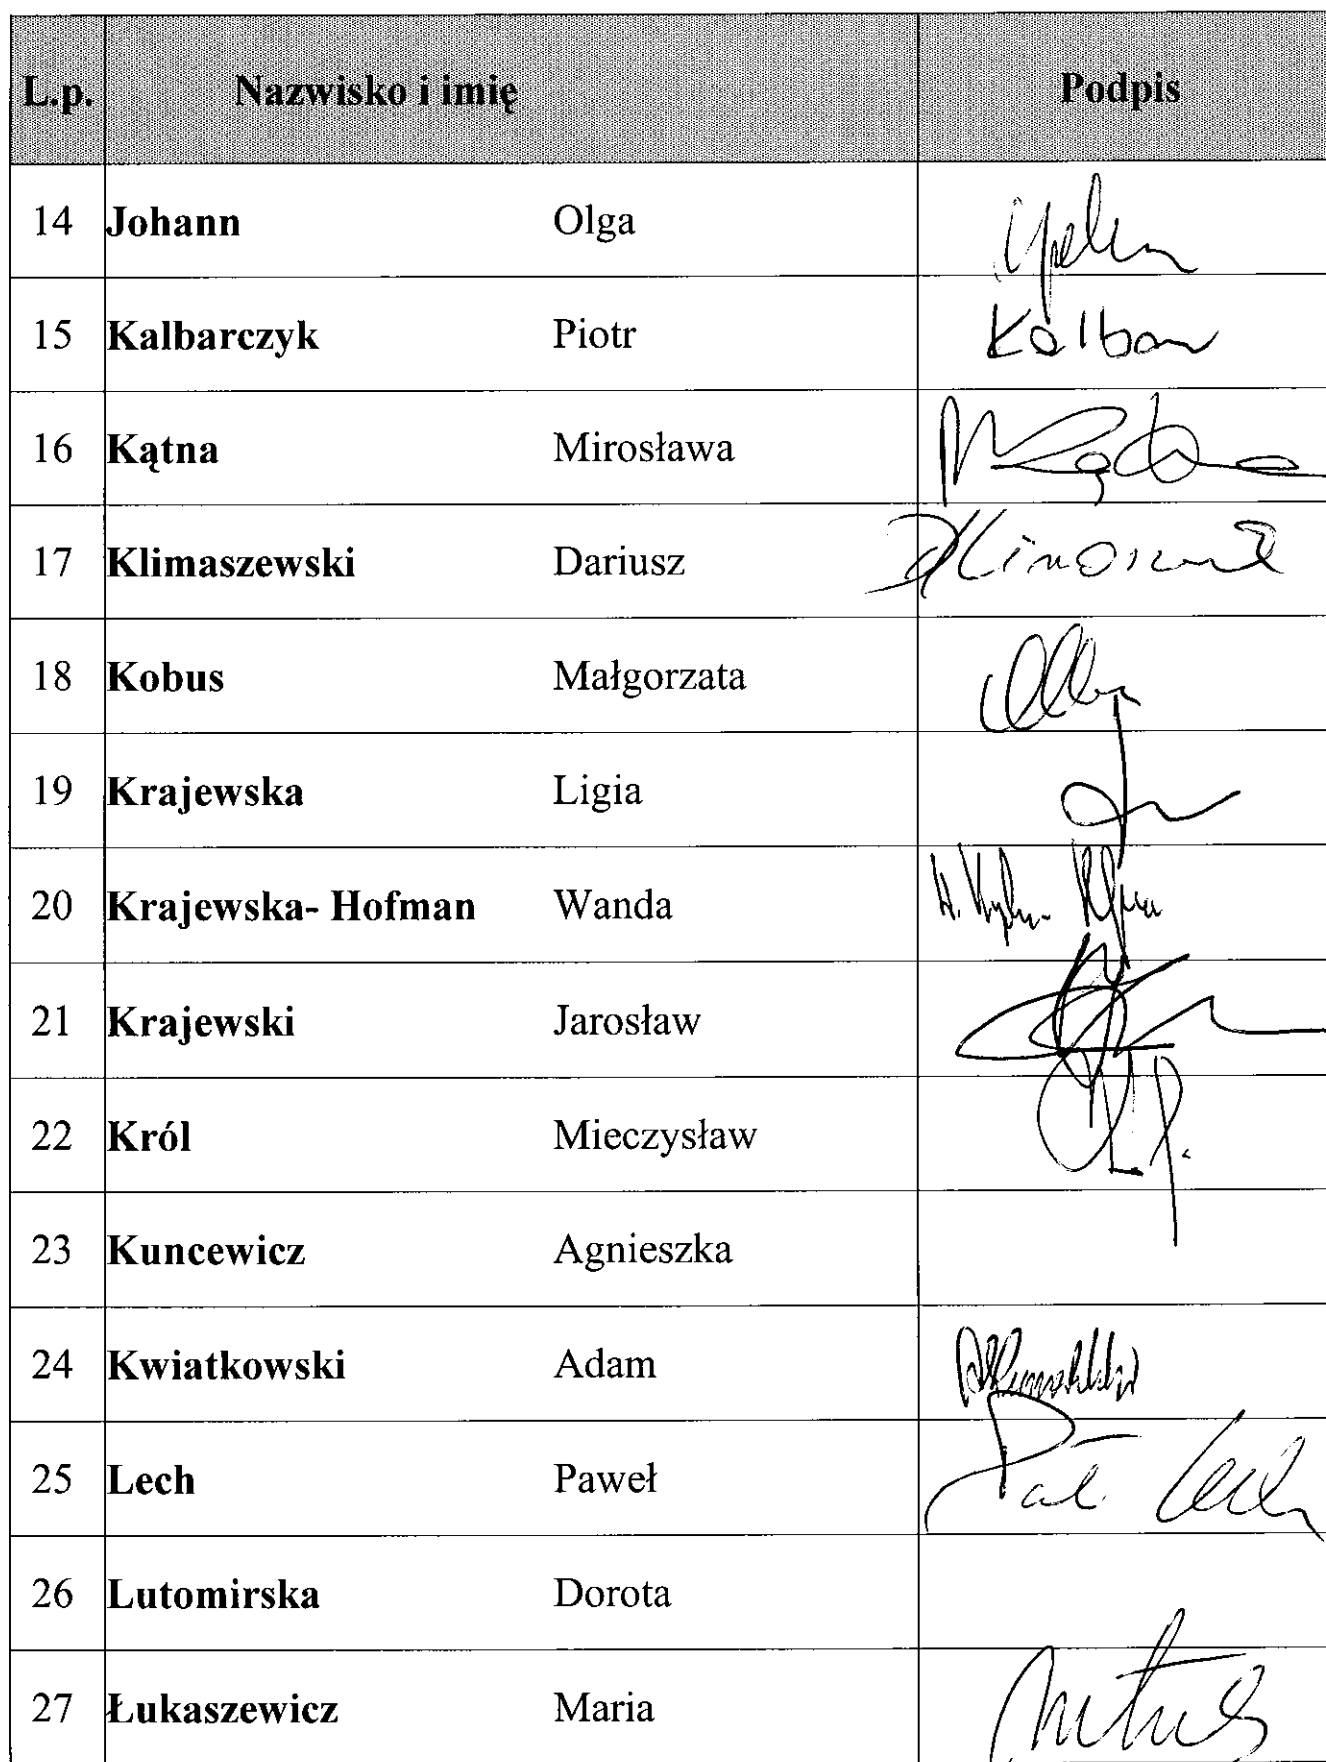 L.p. Nazwisko i imię Podpis
14 Johann Olga
15 Kalbarczyk Piotr Kalbar
16 Kątna Mirosława
17 Klimaszewski Dariusz
18 Kobus Małgorzata
19 Krajewska Ligia
20 Krajewska- Hofman Wanda
21 Krajewski Jarosław
22 Król Mieczysław
23 Kuncewicz Agnieszka
24 Kwiatkowski Adam
25 Lech Paweł Lech
26 Lutomirska Dorota
27 Łukaszewicz Maria